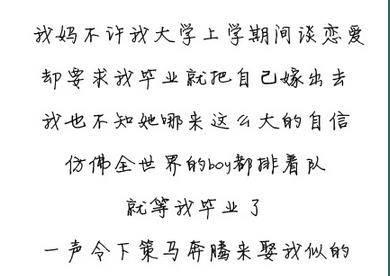 我妈不许我大学上学期间谈恋爱
却要求我毕业就把自己嫁出去
我也不知她哪来这么大的自信
仿佛全世界的boy都排着队
就等我毕业了
一声令下策马奔腾来娶我似的